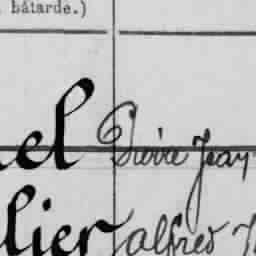 bâtarde.)
el Pierre Jean
lier alfred